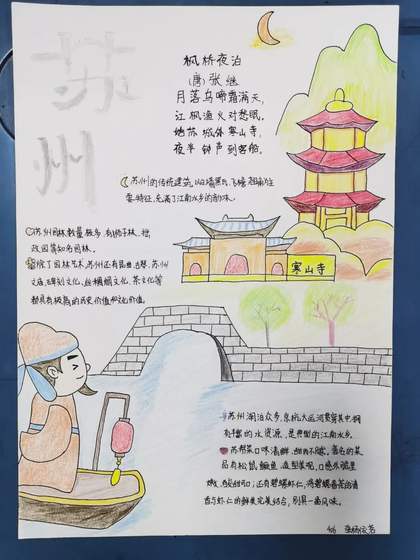 苏州
枫桥夜泊
(唐)张继
月落乌啼霜满天,
江枫渔火对愁眠。
姑苏城外寒山寺,
夜半钟声到客船。
苏州的传统建筑,以粉墙黛瓦、飞檐翘角为主
要特征,充满了江南水乡的韵味。
苏州园林数量极多,有狮子林、拙
政园等知名园林。
除了园林艺术,苏州还有昆曲、古琴、苏州
文庙、碑刻文化、丝绸文化、茶文化等
都具有极高的历史价值和文化价值。
寒山寺
苏州湖泊众多,京杭大运河贯穿其中,拥
有丰富的水资源,是典型的江南水乡。
苏帮菜口味清鲜,甜而不腻,著名的菜
品有松鼠鳜鱼,造型美观,口感外脆里
嫩,酸甜可口;还有碧螺虾仁,将碧螺春茶的清
香与虾仁的鲜美完美结合,别具一番风味。